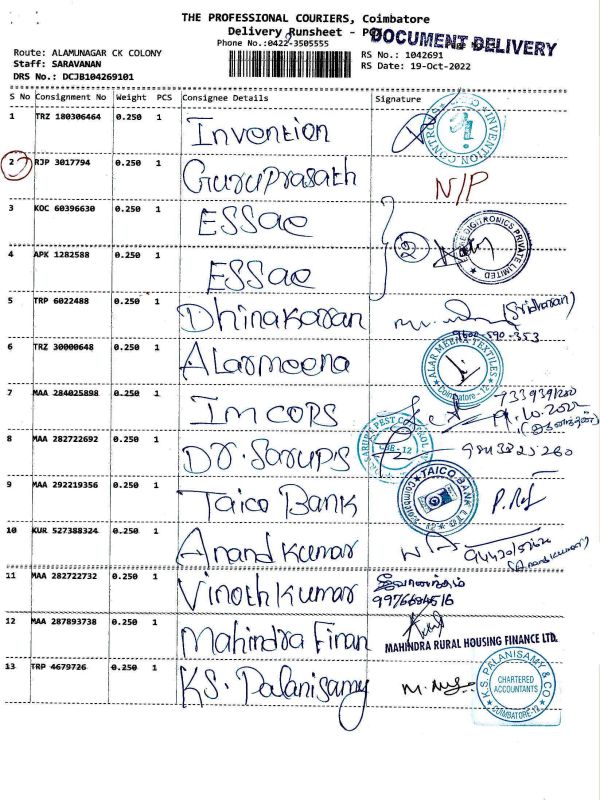 THE PROFESSIONAL COURIERS, Coimbatore
Delivery Runsheet - POD
DOCUMENT DELIVERY
Phone No.:0422-3505555
Route: ALAMUNAGAR CK COLONY
Staff: SARAVANAN
DRS No.: DCJB104269101
RS No.: 1042691
RS Date: 19-Oct-2022
S No Consignment No Weight PCS Consignee Details Signature
1 TRZ 180306464 0.250 1 Invention
INVENTION CONTROLS
2 RJP 3017794 0.250 1 Guruprasath N/P
3 KOC 60396630 0.250 1 ESSae
2
DIGITRONICS PRIVATE LIMITED
4 APK 1282588 0.250 1 ESSae
5 TRP 6022488 0.250 1 Dhinakaran
(Sridharan)
9600-590-353
6 TRZ 30000648 0.250 1 Alarmeena
ALAR MEENA TEXTILES
Coimbatore - 12
7 MAA 284025898 0.250 1 Imcops
19.10.2022
8 MAA 282722692 0.250 1 DR.Sarups
PEST CONTROL
CBE-12
9 MAA 292219356 0.250 1 Taico Bank
TAICO BANK LTD
Coimbatore
10 KUR 527388324 0.250 1 Anand kumar
(Anand kumar)
11 MAA 282722732 0.250 1 Vinoth kumar
ஜீவானந்தம்
12 MAA 287893738 0.250 1 Mahindra Finan
MAHINDRA RURAL HOUSING FINANCE LTD.
13 TRP 4679726 0.250 1 KS. Palanisamy
K.S. PALANISAMY & CO
CHARTERED
ACCOUNTANTS
COIMBATORE-12